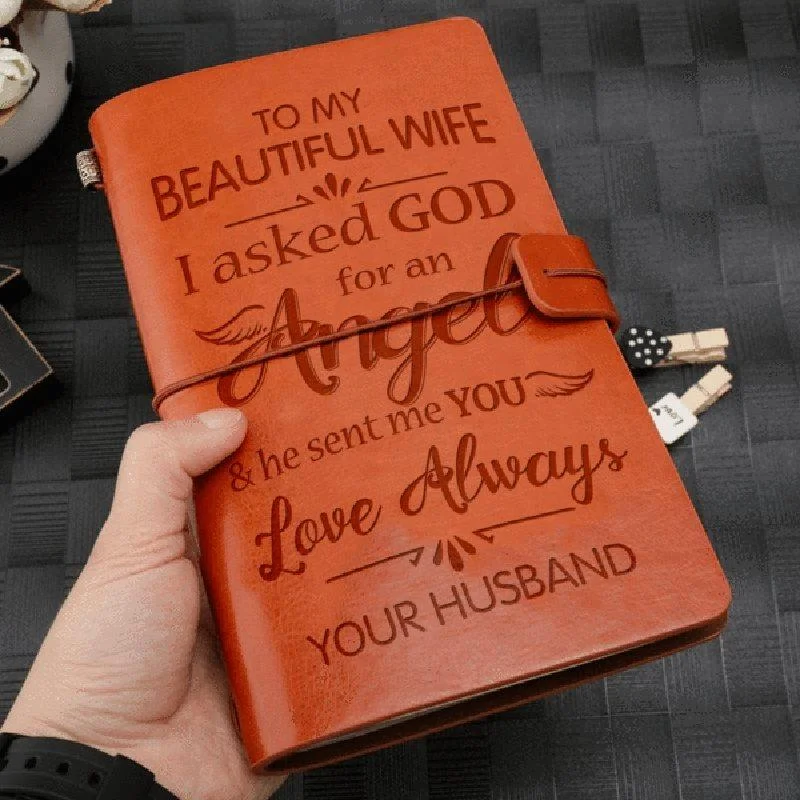 TO MY
BEAUTIFUL WIFE
I asked GOD
for an
Angel
& he sent me YOU
Love Always
YOUR HUSBAND